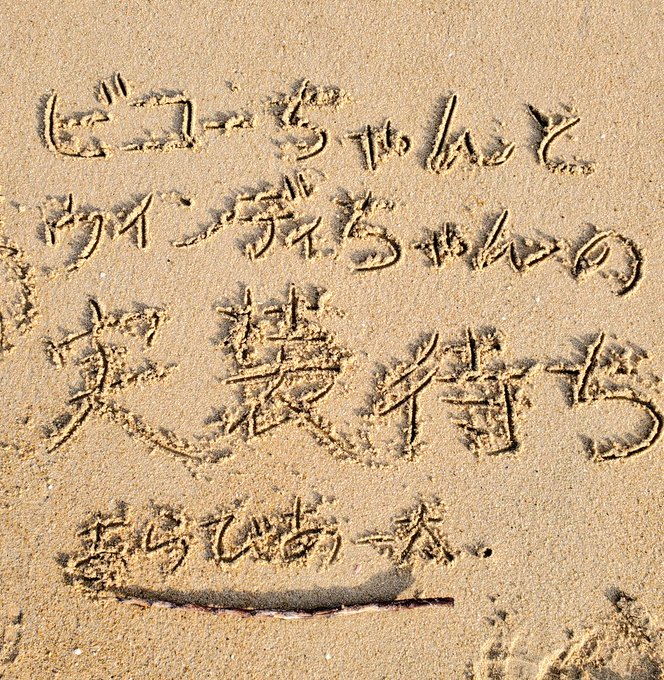 ビコーちゃんと
ウィンディちゃんの
実装待ち
あらびあ一太